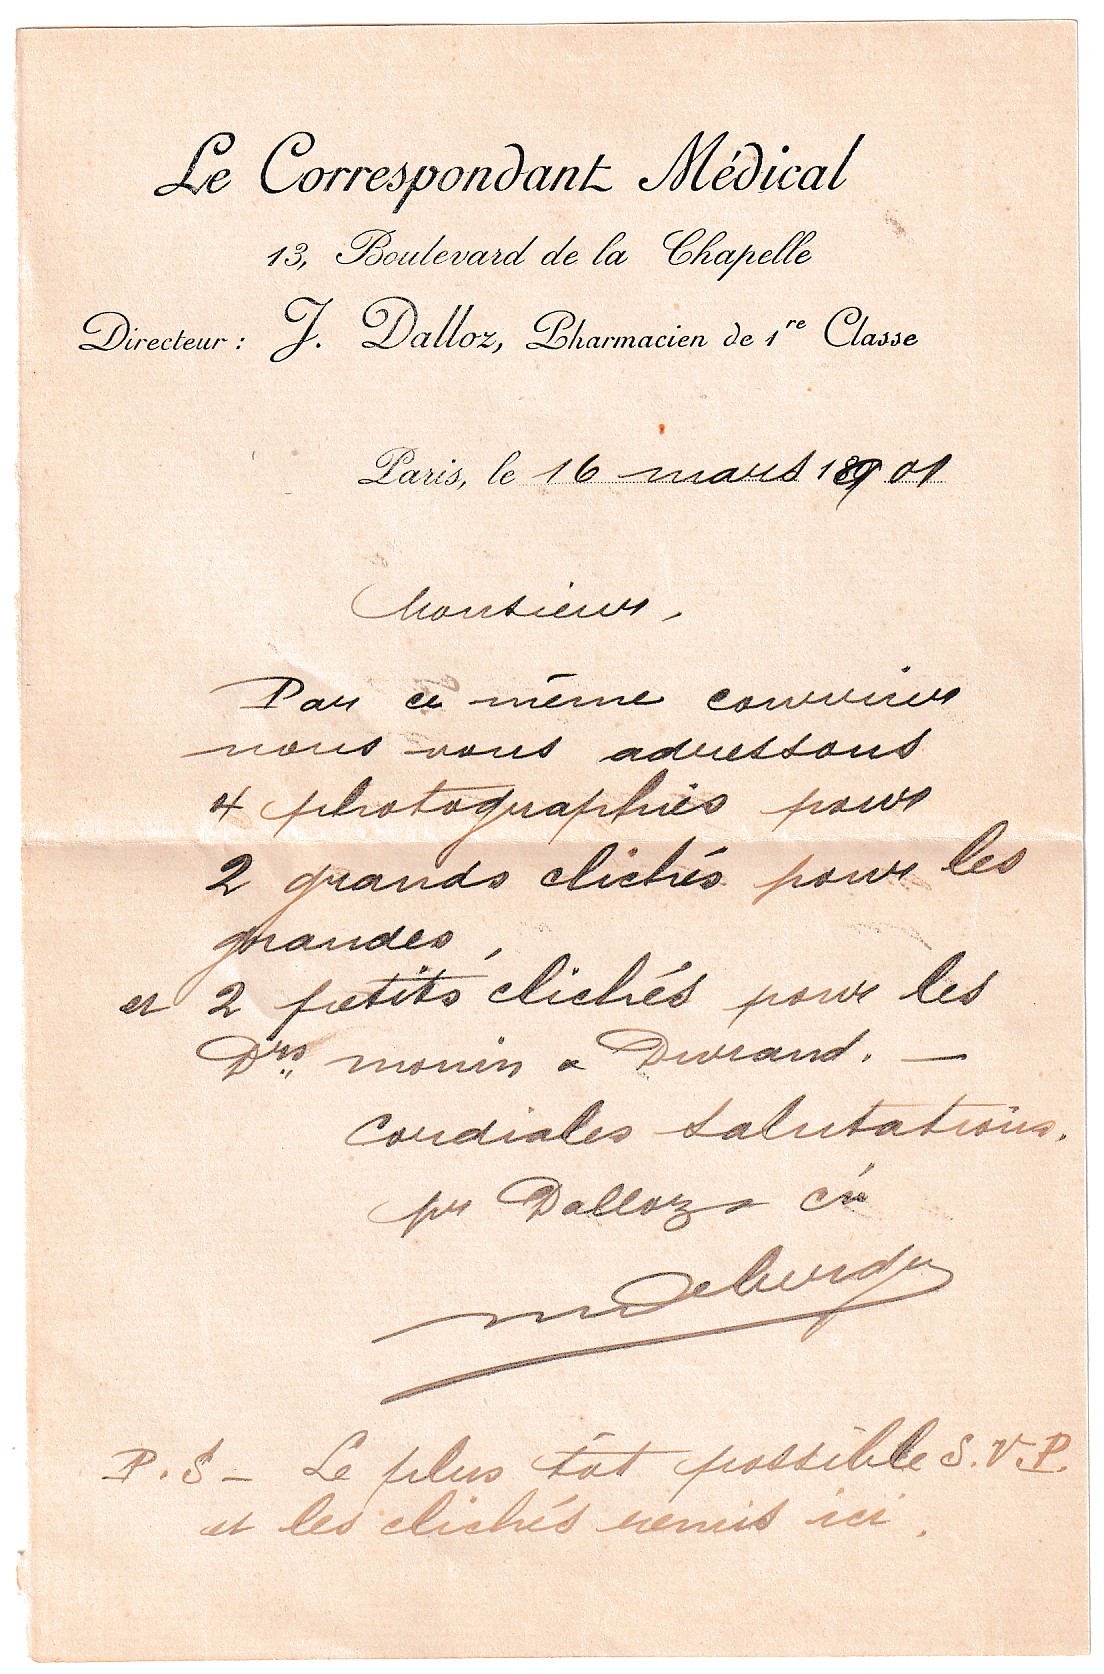 Le Correspondant Médical
13, Boulevard de la Chapelle
Directeur : J. Dalloz, Pharmacien de 1re Classe
Paris, le 16 mars 1901
Monsieur,
Par ce même courrier
nous vous adressons
4 photographies pour
2 grands clichés pour les
grandes,
et 2 petits clichés pour les
Drs Monin & Durand. —
Cordiales salutations.
pr Dalloz & Cie
P.S – Le plus tôt possible S.V.P.
et les clichés remis ici.